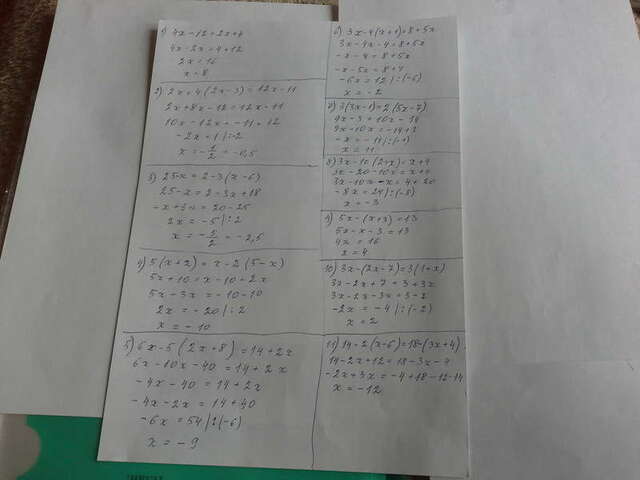 1) 4x-12=2x+4
4x-2x=4+12
2x=16
x=8
2) 2x+4(2x-3)=12x-11
2x+8x-12=12x-11
10x-12x=-11+12
-2x=1 |:2
x=-1/2=-0,5
3) 25-x=2-3(x-6)
25-x=2-3x+18
-x+3x=20-25
2x=-5 |:2
x=-5/2=-2,5
4) 5(x+2)=x-2(5-x)
5x+10=x-10-2x
5x-3x=-10-10
2x=-20 |:2
x=-10
5) 6x-5(2x+8)=14+2x
6x-10x-40=14+2x
-4x-40=14+2x
-4x-2x=14+40
-6x=54 |:(-6)
x=-9
6) 3x-4(x+1)=8+5x
3x-4x-4=8+5x
-x-4=8+5x
-x-5x=8+4
-6x=12 |:(-6)
x=-2
7) 3(3x-1)=2(5x-7)
9x-3=10x-14
9x-10x=-14+3
-x=-11 |:(-1)
x=11
8) 3x-10(2+x)=x+4
3x-20-10x=x+4
3x-10x-x=4+20
-8x=24 |:(-8)
x=-3
9) 5x-(x+3)=13
5x-x-3=13
4x=16
x=4
10) 3x-(2x-7)=3(1+x)
3x-2x+7=3+3x
3x-2x-3x=3-7
-2x=-4 |:(-2)
x=2
11) 14-2(x-6)=18-(3x+4)
14-2x+12=18-3x-4
-2x+3x=-4+18-12-14
x=-12